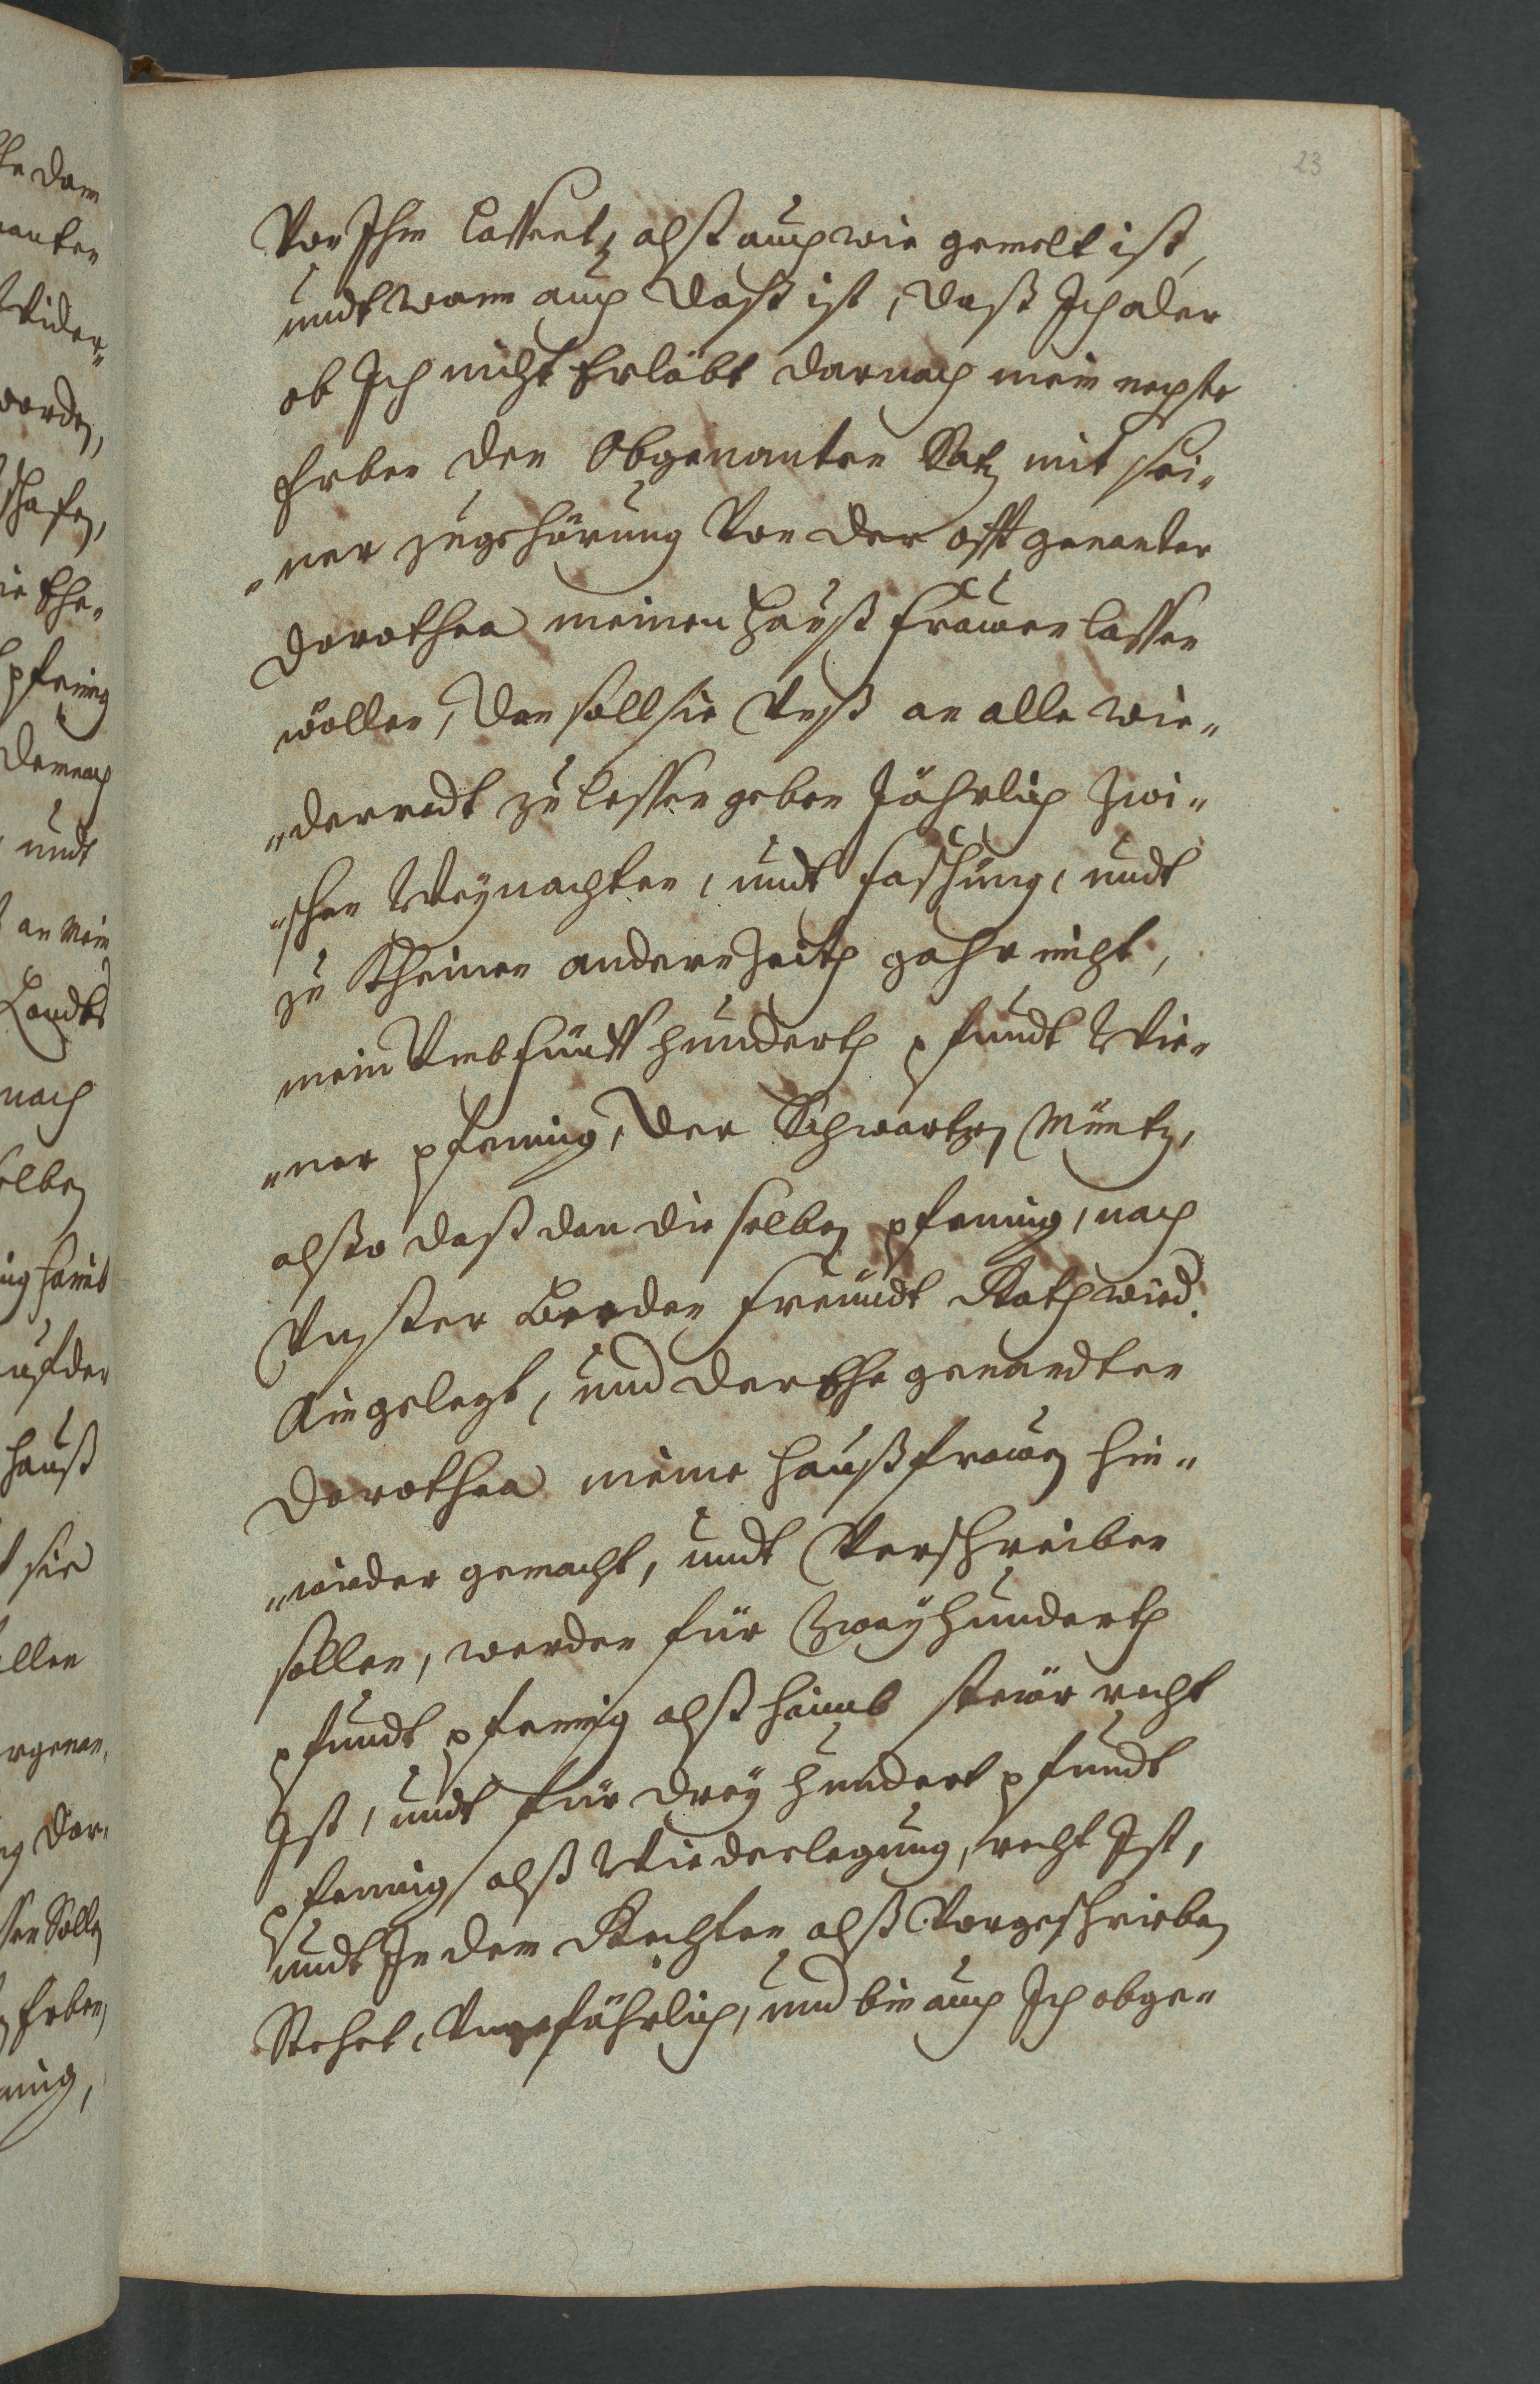 23
Von Ihm Lassent, alß auch wie gemelt ist,
undt wann auch daß ist, daß Ich oder
ob Ich nicht Erläbt darnach mein nechste
Erben den Obgenanten Satz mit sei„
„ner zugehörung Von der offt genanter
Dorothea meinen Hauß frauen lassen
wöllen, den soll sie Unß an alle wie„
„derredt zu lessen geben Jährlich zwi„
„schen Weÿnachten, undt fasching, undt
zu Kheinen andern Zeith gahr nicht,
mein Umb fünff hunderth pfundt Wie„
„ner pfening, der Schwartzen Müntz,
alßo daß dan die selben pfening, nach
Unster Beeden freündt Rath wird
Ain gelegt, und der Ehe genandten
Dorothea meine haußfrauen hin„
„wider gemacht, undt Verschreiben
sollen, werden für Zwaÿhunderth
pfundt pfening alß haimb steür recht
Ist, undt für dreÿ hundert pfundt
pfening alß Wiederlegung, recht Ist,
undt In den Rechten alß Vorgeschrieben
Stehet, Ungefährlich, und bin auch Ich obge„